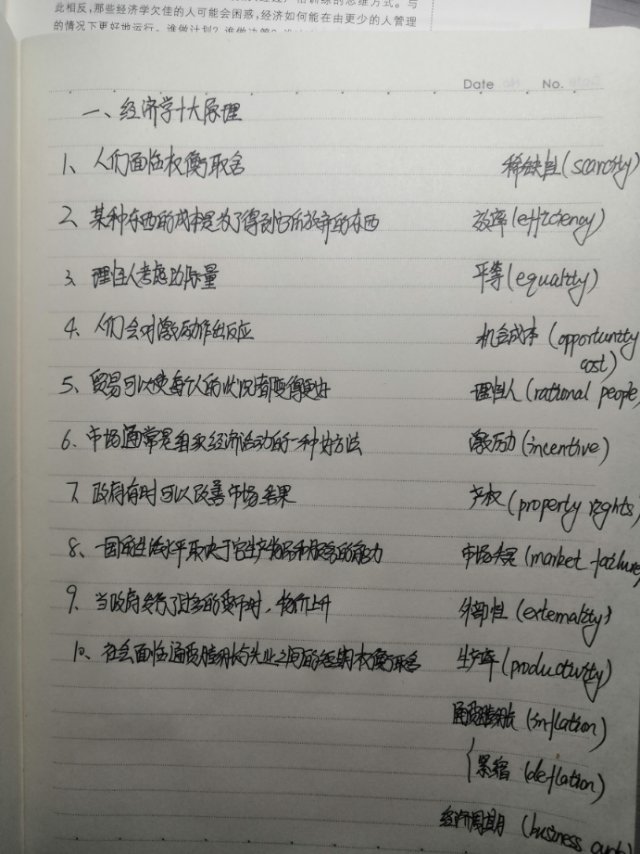 此相反,那些经济学欠佳的人可能会困惑,经济如何能在由更少的人管理
的情况下更好地运行。谁做计划?谁做决策?
Date No.
一、经济学十大原理
1、人们面临权衡取舍 稀缺性(scarcity)
2、某种东西的成本是为了得到它所放弃的东西 效率(efficiency)
3、理性人考虑边际量 平等(equality)
4、人们会对激励作出反应 机会成本(opportunity
cost)
5、贸易可以使每个人的状况都变得更好 理性人(rational people)
6、市场通常是组织经济活动的一种好方法 激励(incentive)
7、政府有时可以改善市场结果 产权(property rights)
8、一国的生活水平取决于它生产物品和服务的能力 市场失灵(market failure)
9、当政府发行了过多的货币时,物价上升 外部性(externality)
10、社会面临通货膨胀与失业之间的短期权衡取舍 生产率(productivity)
通货膨胀(inflation)
紧缩(deflation)
经济周期(business cycle)